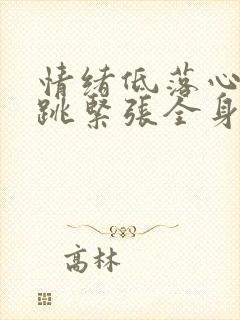 情緒低落心
跳緊張全身
高林